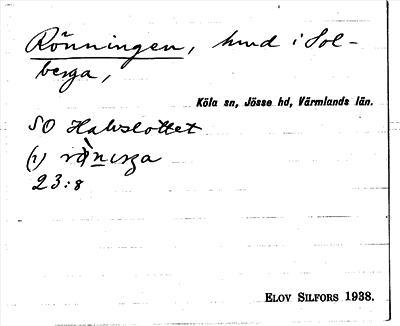 Rönningen, hmd i Sol-
berga,
Köla sn, Jösse hd, Värmlands län.
SO Halvslottet
(1)
23:8
ELOV SILFORS 1938.